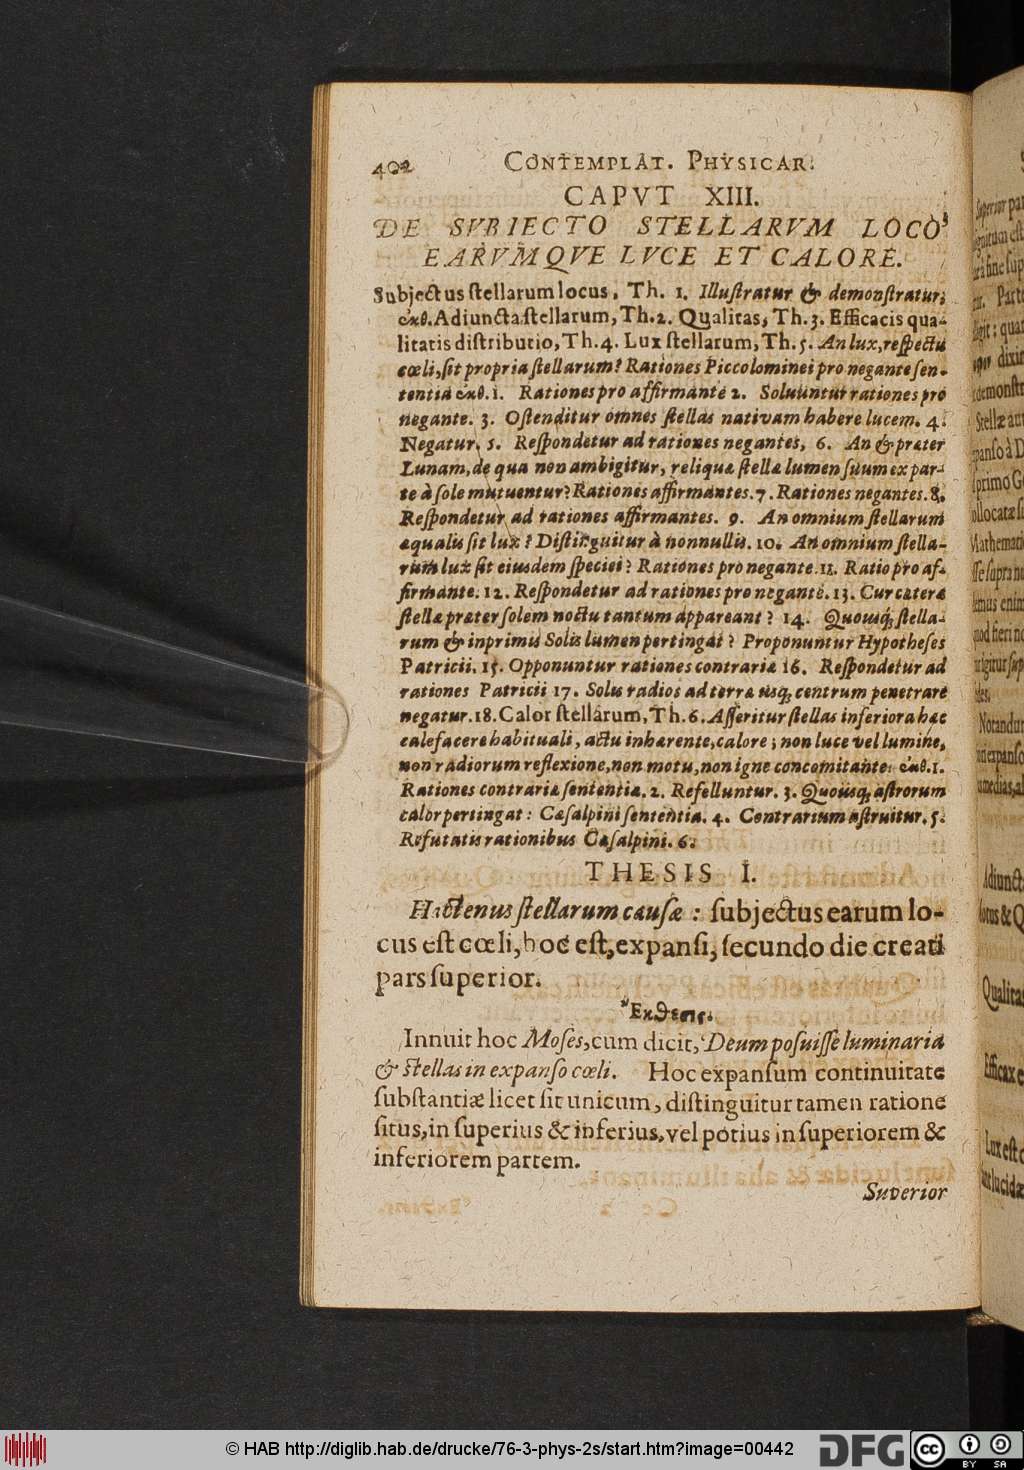 402 CONTEMPLAT. PHYSICAR.
CAPVT XIII.
DE SVBIECTO STELLARVM LOCO,
EARVMQVE LVCE ET CALORE.
Subjectus stellarum locus, Th. 1. Illustratur & demonstratur,
ἐκθ. Adiuncta stellarum, Th. 2. Qualitas, Th. 3. Efficacis qua-
litatis distributio, Th. 4. Lux stellarum, Th. 5. An lux, respectu
cœli, sit propria stellarum? Rationes Piccolominei pro negante sen-
tentia ἐκθ. 1. Rationes pro affirmante 2. Soluuntur rationes pro
negante. 3. Ostenditur omnes stellas nativam habere lucem. 4.
Negatur. 5. Respondetur ad rationes negantes, 6. An & præter
Lunam, de qua non ambigitur, reliquæ stellæ lumen suum ex par-
te à sole mutuentur? Rationes affirmantes. 7. Rationes negantes. 8.
Respondetur ad rationes affirmantes. 9. An omnium stellarum
æqualis sit lux? Distinguitur à nonnullis. 10. An omnium stella-
rum lux sit eiusdem speciei? Rationes pro negante. 11. Ratio pro af-
firmante. 12. Respondetur ad rationes pro negante. 13. Cur cæteræ
stellæ præter solem noctu tantum appareant? 14. Quousq; stella-
rum & inprimis Solis lumen pertingat? Proponuntur Hypotheses
Patricii. 15. Opponuntur rationes contrariæ 16. Respondetur ad
rationes Patricii 17. Solis radios ad terræ usq; centrum penetrare
negatur. 18. Calor stellarum, Th. 6. Asseritur stellas inferiora hæc
calefacere habituali, actu inhærente, calore; non luce vel lumine,
non radiorum reflexione, non motu, non igne concomitante. ἐκθ. 1.
Rationes contrariæ sententiæ. 2. Refelluntur. 3. Quousq; astrorum
calor pertingat: Cæsalpini sententia. 4. Contrarium astruitur. 5.
Refutatis rationibus Cæsalpini. 6.
THESIS I.
Hactenus stellarum causæ: subjectus earum lo-
cus est cœli, hoc est, expansi, secundo die creati
pars superior.
Ἔκθεσις.
Innuit hoc Moses, cum dicit, Deum posuisse luminaria
& stellas in expanso cœli. Hoc expansum continuitate
substantiæ licet sit unicum, distinguitur tamen ratione
situs, in superius & inferius, vel potius in superiorem &
inferiorem partem.
Superior
© HAB http://diglib.hab.de/drucke/76-3-phys-2s/start.htm?image=00442
DFG
cc
BY SA